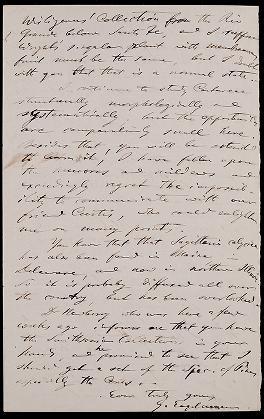 Wislizenus' Collection from the Rio
Grande below Santa Fe, and I suppose
Wright's singular plant with membranaceous
fruit must be the same, but I
with you that that is a normal state.
I continue to study Cactaceae
structurally morphologically and
systematically, but the opportunities
are comparatively small here
besides that, you will be astonished
to learn it, I have fallen upon
the and mildews and
exceedingly regret the impossi-
bility to communicate with our
friend Curtis, who could enlighten
me on many points.
You know that that Sagittaria calycina
has also been found in Maine in
Delaware, and now in northern Illinois
so it is probably diffused all over
the country but has been overlooked.
J Newberry who was here a few
weeks ago informs me that you have
the Smithsonian Collection, in your
hands, and he promised to see that I
should get a set of the spec. of Pines
especially the Cones.
Yours truly yours
G. Engelmann